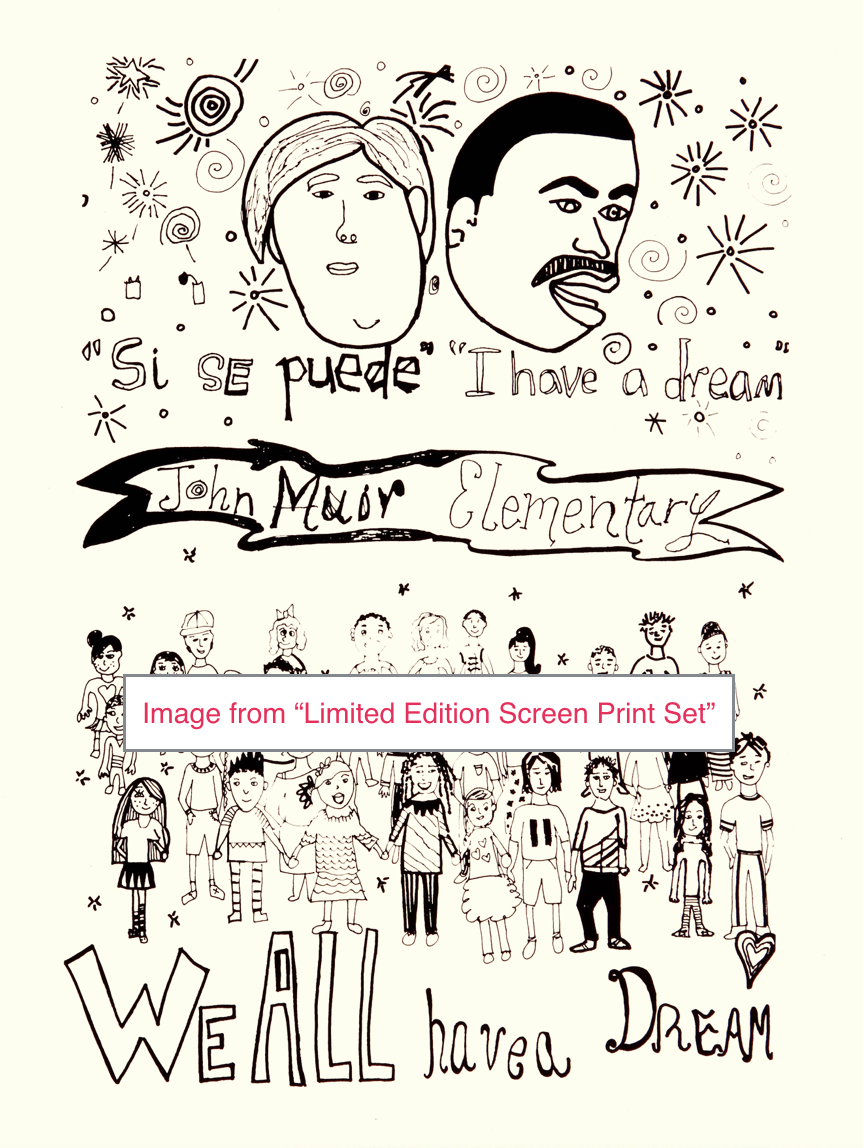 "Si SE puede" "I have a dream"
John Muir Elementary
Image from “Limited Edition Screen Print Set”
WE ALL have a DREAM